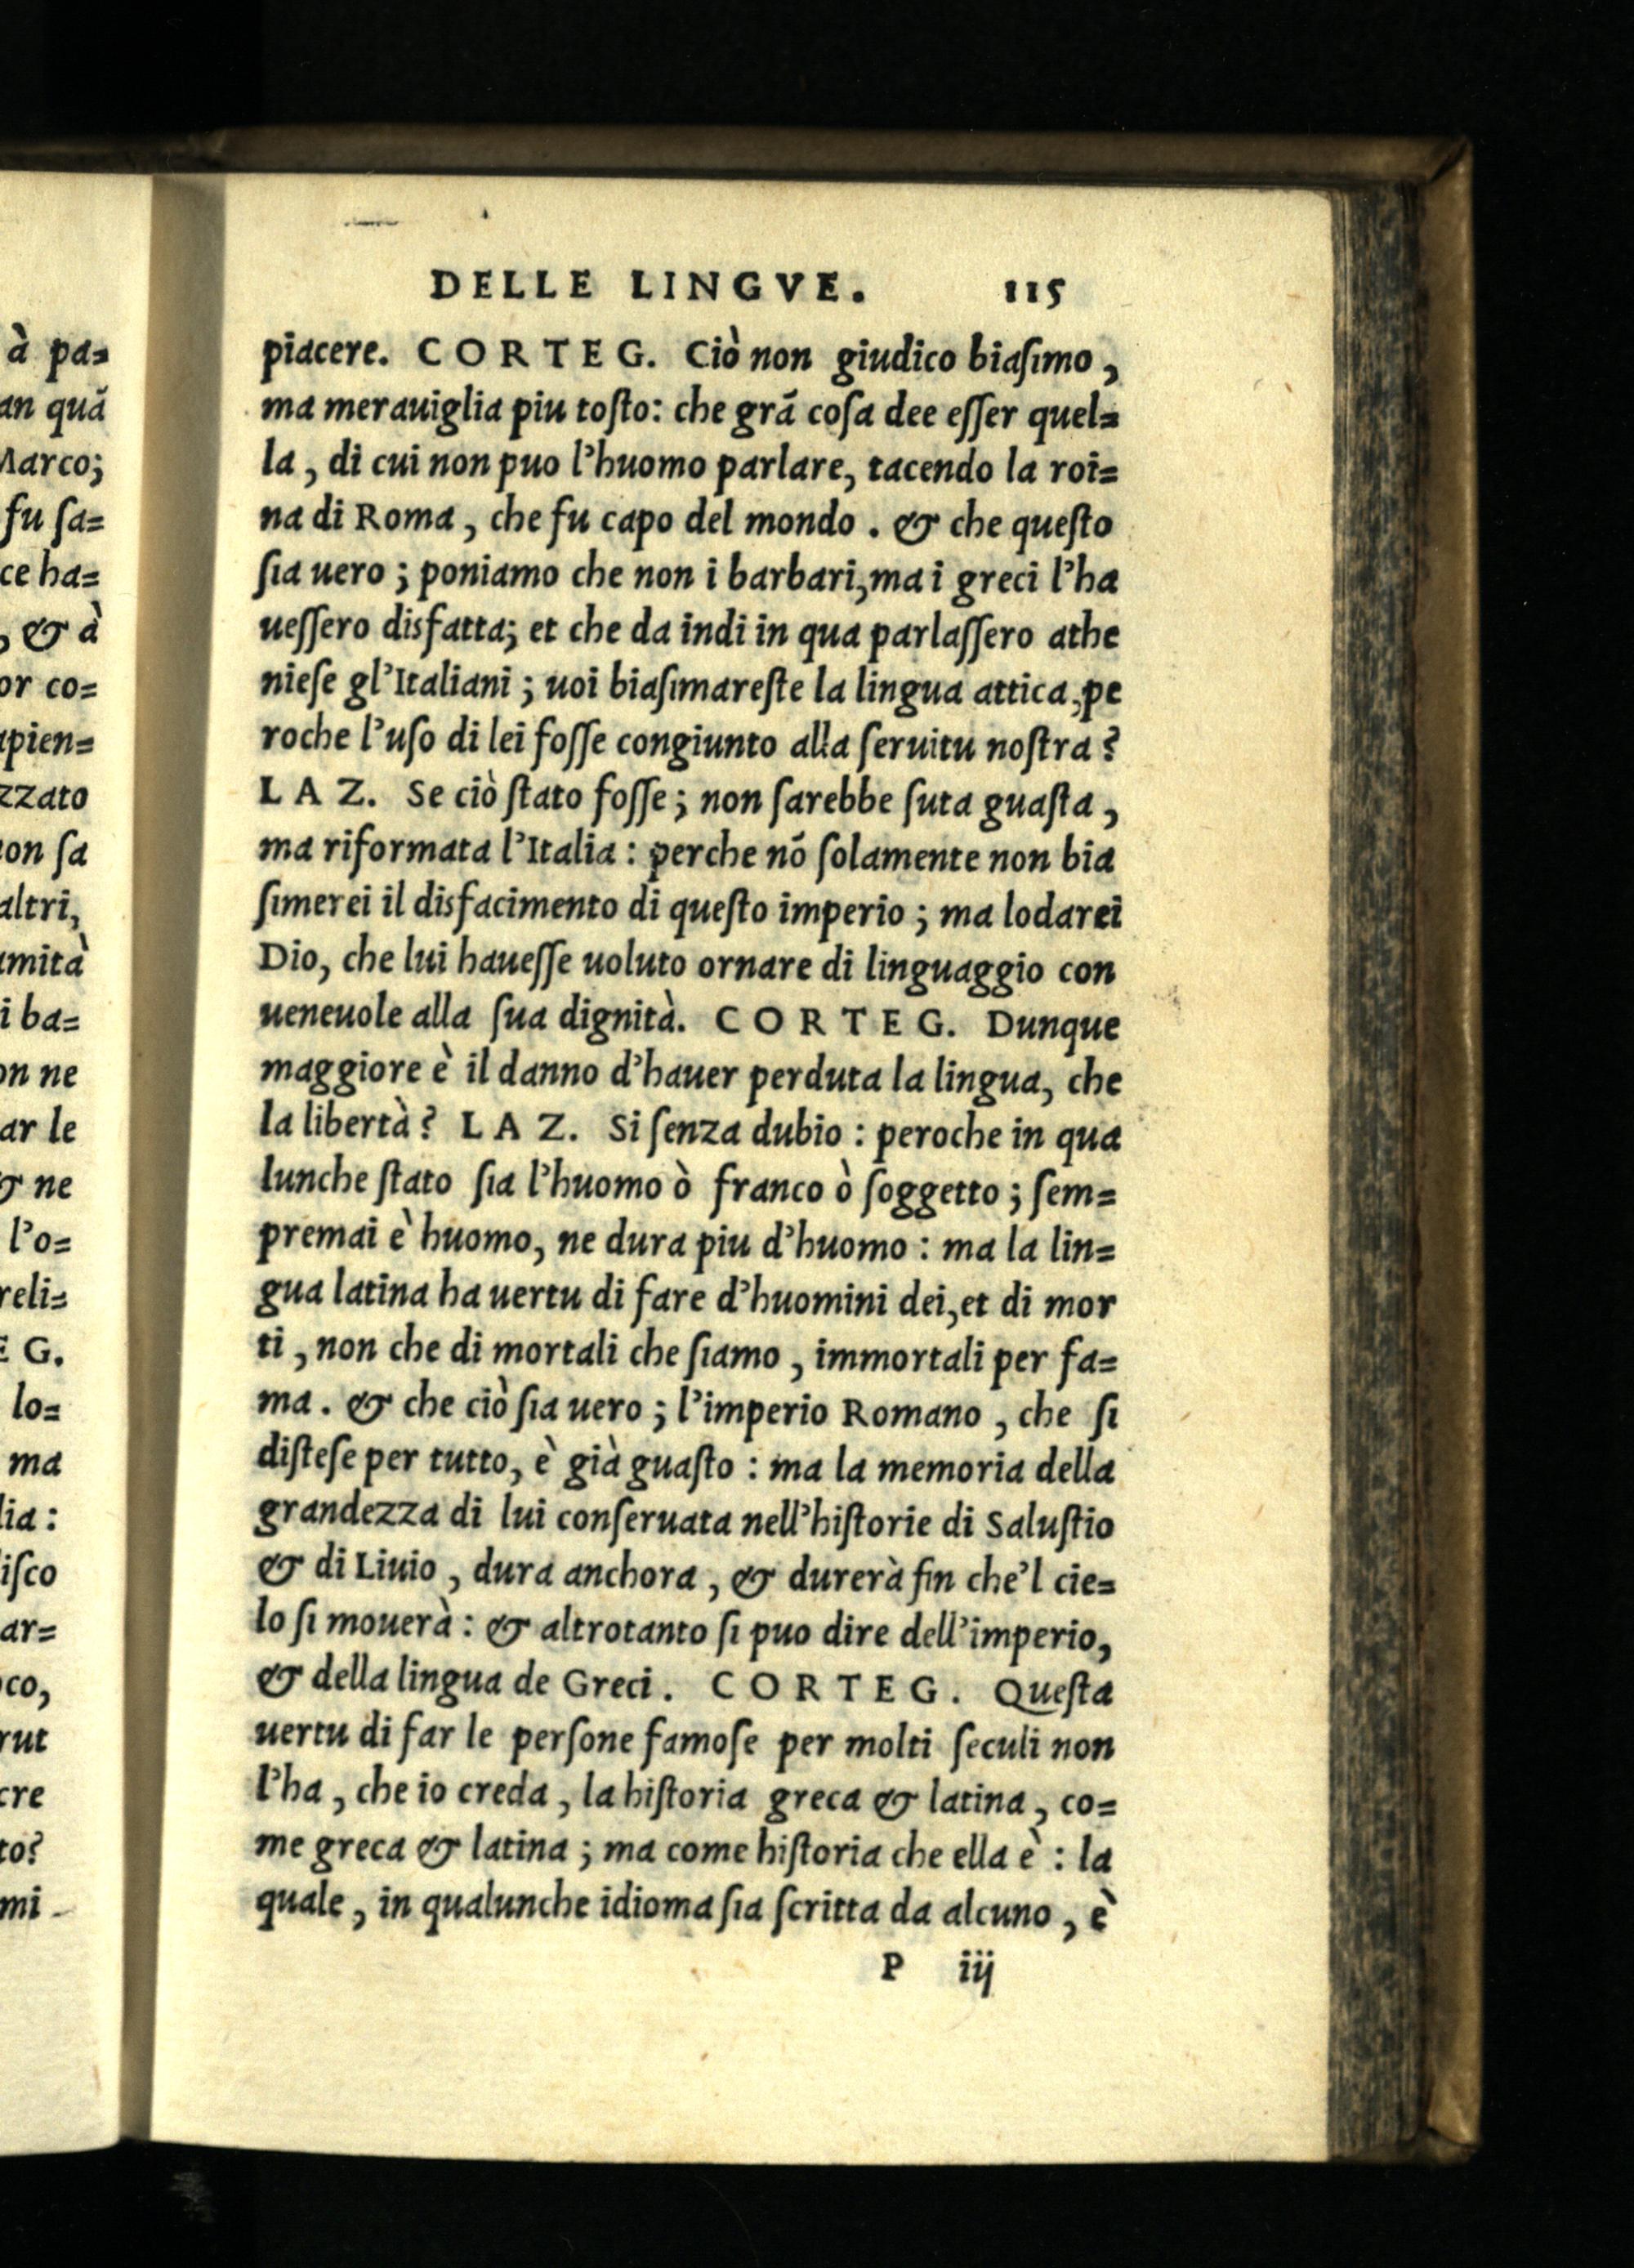 DELLE LINGVE. 115
piacere. CORTEG. Ciò non giudico biaſimo,
ma merauiglia piu toſto: che grã coſa dee eſſer quel=
la, di cui non puo l'huomo parlare, tacendo la roi=
na di Roma, che fu capo del mondo. & che queſto
ſia uero; poniamo che non i barbari, ma i greci l'ha
ueſſero disfatta; et che da indi in qua parlaſſero athe
nieſe gl'Italiani; uoi biaſimareſte la lingua attica, pe
roche l'uſo di lei foſſe congiunto alla ſeruitu noſtra?
LAZ. Se ciò ſtato foſſe; non ſarebbe ſuta guaſta,
ma riformata l'Italia: perche nõ ſolamente non bia
ſimerei il disfacimento di queſto imperio; ma lodarei
Dio, che lui haueſſe uoluto ornare di linguaggio con
ueneuole alla ſua dignità. CORTEG. Dunque
maggiore è il danno d'hauer perduta la lingua, che
la libertà? LAZ. Si ſenza dubio: peroche in qua
lunche ſtato ſia l'huomo ò franco ò ſoggetto; ſem=
premai è huomo, ne dura piu d'huomo: ma la lin=
gua latina ha uertu di fare d'huomini dei, et di mor
ti, non che di mortali che ſiamo, immortali per fa=
ma. & che ciò ſia uero; l'imperio Romano, che ſi
diſteſe per tutto, è già guaſto: ma la memoria della
grandezza di lui conſeruata nell'hiſtorie di Saluſtio
& di Liuio, dura anchora, & durerà fin che'l cie=
lo ſi mouerà: & altrotanto ſi puo dire dell'imperio,
& della lingua de Greci. CORTEG. Queſta
uertu di far le perſone famoſe per molti ſeculi non
l'ha, che io creda, la hiſtoria greca & latina, co=
me greca & latina; ma come hiſtoria che ella è: la
quale, in qualunche idioma ſia ſcritta da alcuno, è
P iij